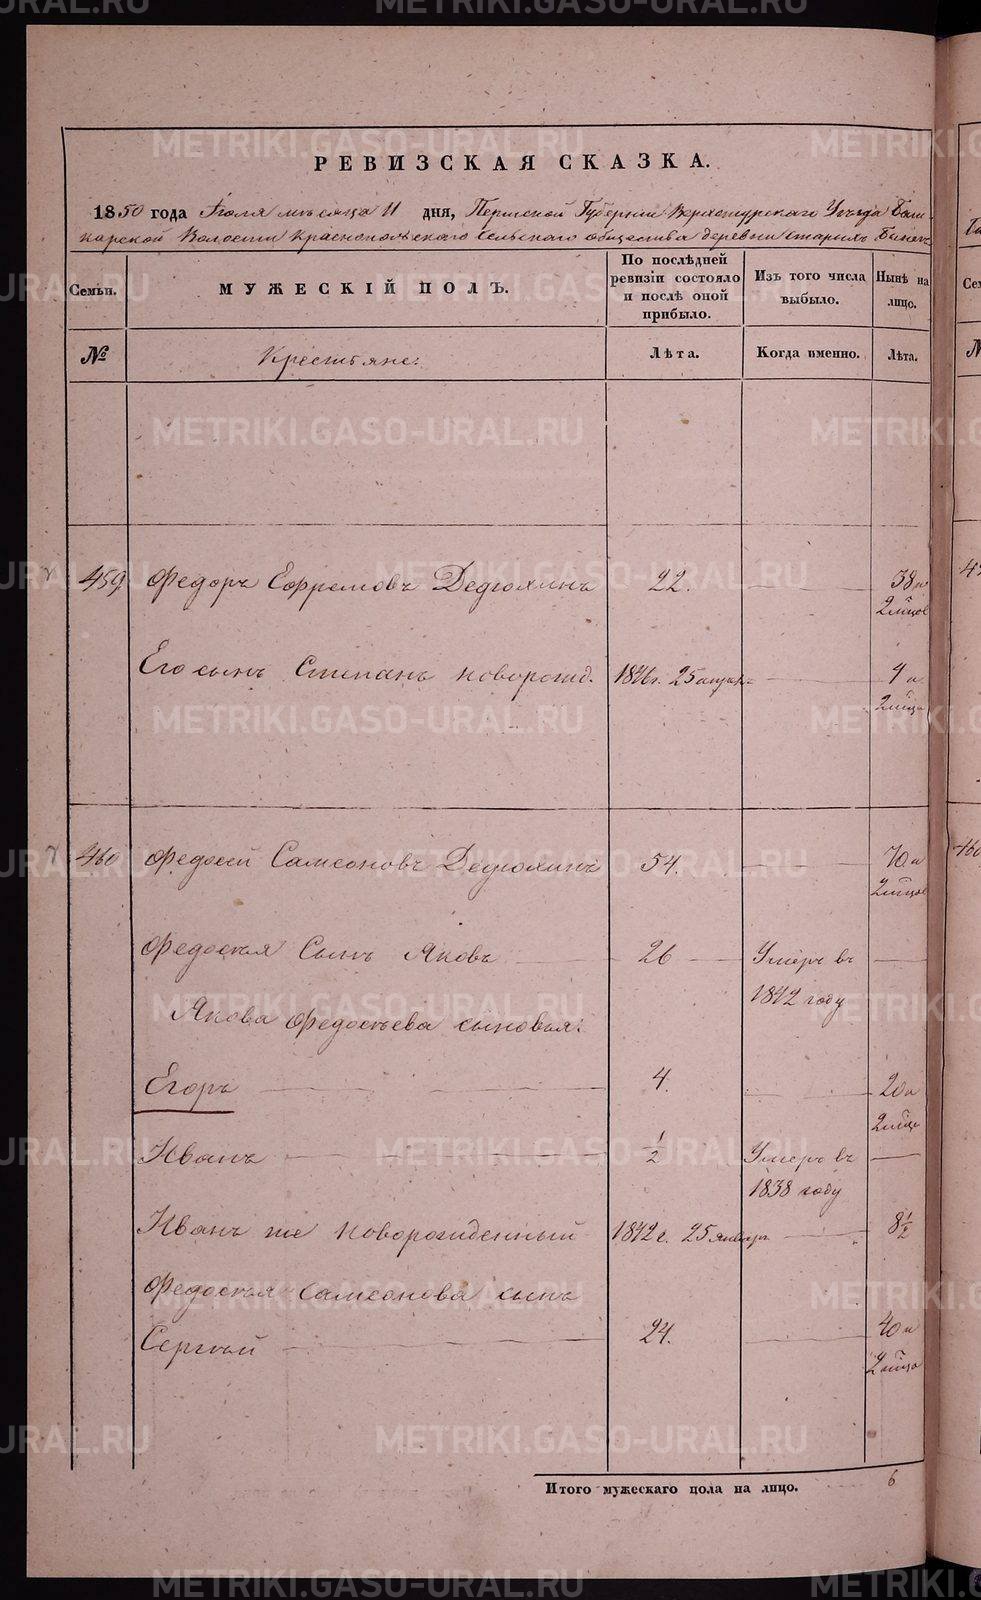 РЕВИЗСКАЯ СКАЗКА.
1850 года Июля месяца 11 дня, Пермской Губернии Верхотурскаго Уѣзда Баш-
карской Волости Краснопольскаго сельскаго общества деревни старыхъ
Семьи.
МУЖЕСКІЙ ПОЛЪ.
По послѣдней ревизіи состояло и послѣ оной прибыло.
Изъ того числа выбыло.
Нынѣ на лицо.
№
Крестьяне:
Лѣта.
Когда именно.
Лѣта.
459 Федоръ Ефремовъ Дедюхинъ 22. 38 и
2 мѣсяцов
Его сынъ Степанъ новорожд. 1846 г. 25 апреля 4 и
2 мѣсяца
460 Федосей Самсоновъ Дедюхинъ 54. 70 и
2 мѣсяцов
Федосѣя Сынъ Яковъ 26 Умеръ въ
1842 году
Якова Федосѣева сыновья:
Егоръ 4. 20 и
2 мѣсяца
Иванъ 1/2 Умеръ въ
1838 году
Иванъ же новорожденный 1842 г. 25 январь 8 1/2
Федосѣя Самсонова сынъ
Сергѣй 24. 40 и
2 мѣсяца
Итого мужескаго пола на лицо. 6
METRIKI.GASO-URAL.RU